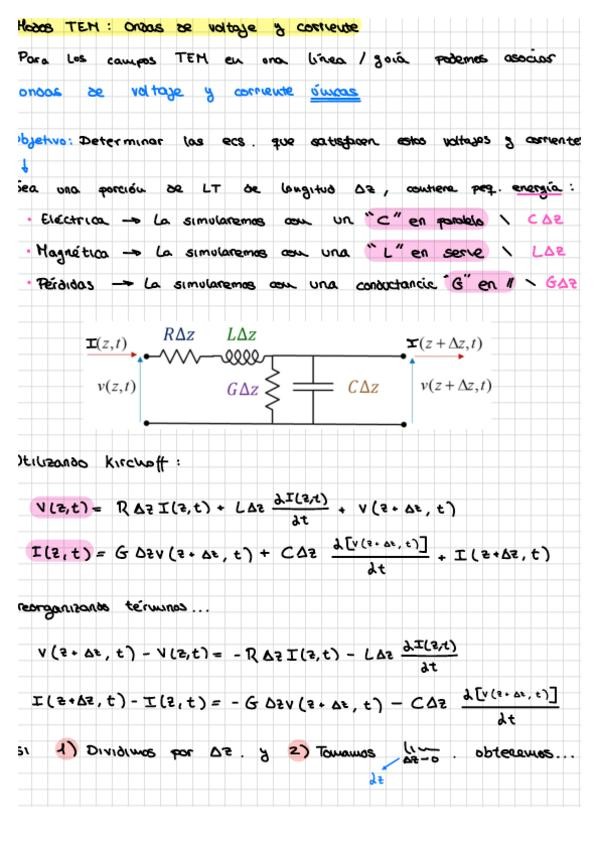 Modos TEM: Ondas de voltaje y corriente
Para los campos TEM en una línea / guía podemos asociar
ondas de voltaje y corriente únicas
Objetivo: Determinar las ecs. que satisfacen estos voltajes y corrientes
↓
Sea una porción de LT de longitud Δz, contiene peq. energía:
• Eléctrica → La simularemos con un "C" en paralelo \ CΔz
• Magnética → La simularemos con una "L" en serve \ LΔz
• Pérdidas → La simularemos con una conductancia "G" en // \ GΔz
I(z,t) RΔz LΔz I(z+Δz,t)
v(z,t) GΔz CΔz v(z+Δz,t)
Utilizando Kirchoff:
V(z,t) = RΔz I(z,t) + LΔz ∂I(z,t)/∂t + V(z+Δz, t)
I(z,t) = G Δz v(z+Δz, t) + CΔz ∂[v(z+Δz, t)]/∂t + I(z+Δz, t)
reorganizando términos...
V(z+Δz, t) - V(z,t) = -RΔz I(z,t) - LΔz ∂I(z,t)/∂t
I(z+Δz, t) - I(z,t) = -G Δz v(z+Δz, t) - CΔz ∂[v(z+Δz, t)]/∂t
Si 1) Dividimos por Δz. y 2) Tomamos lim Δz→0. obtenemos...
dz